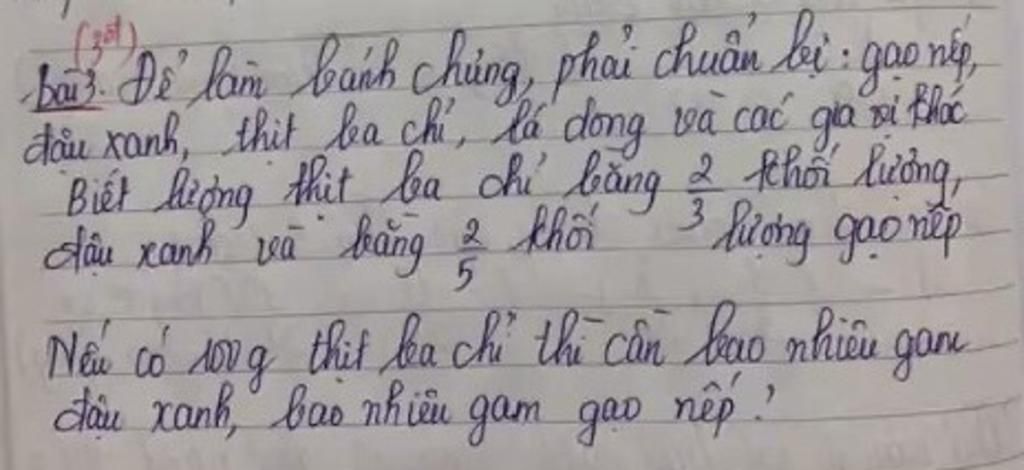 (3đ)
bài 3. Để làm bánh chưng, phải chuẩn bị : gạo nếp,
đậu xanh, thịt ba chỉ, lá dong và các gia vị khác
Biết lượng thịt ba chỉ bằng 2/3 khối lượng,
đậu xanh và bằng 2/5 khối lượng gạo nếp
Nếu có 100g thịt ba chỉ thì cần bao nhiêu gam
đậu xanh, bao nhiêu gam gạo nếp ?